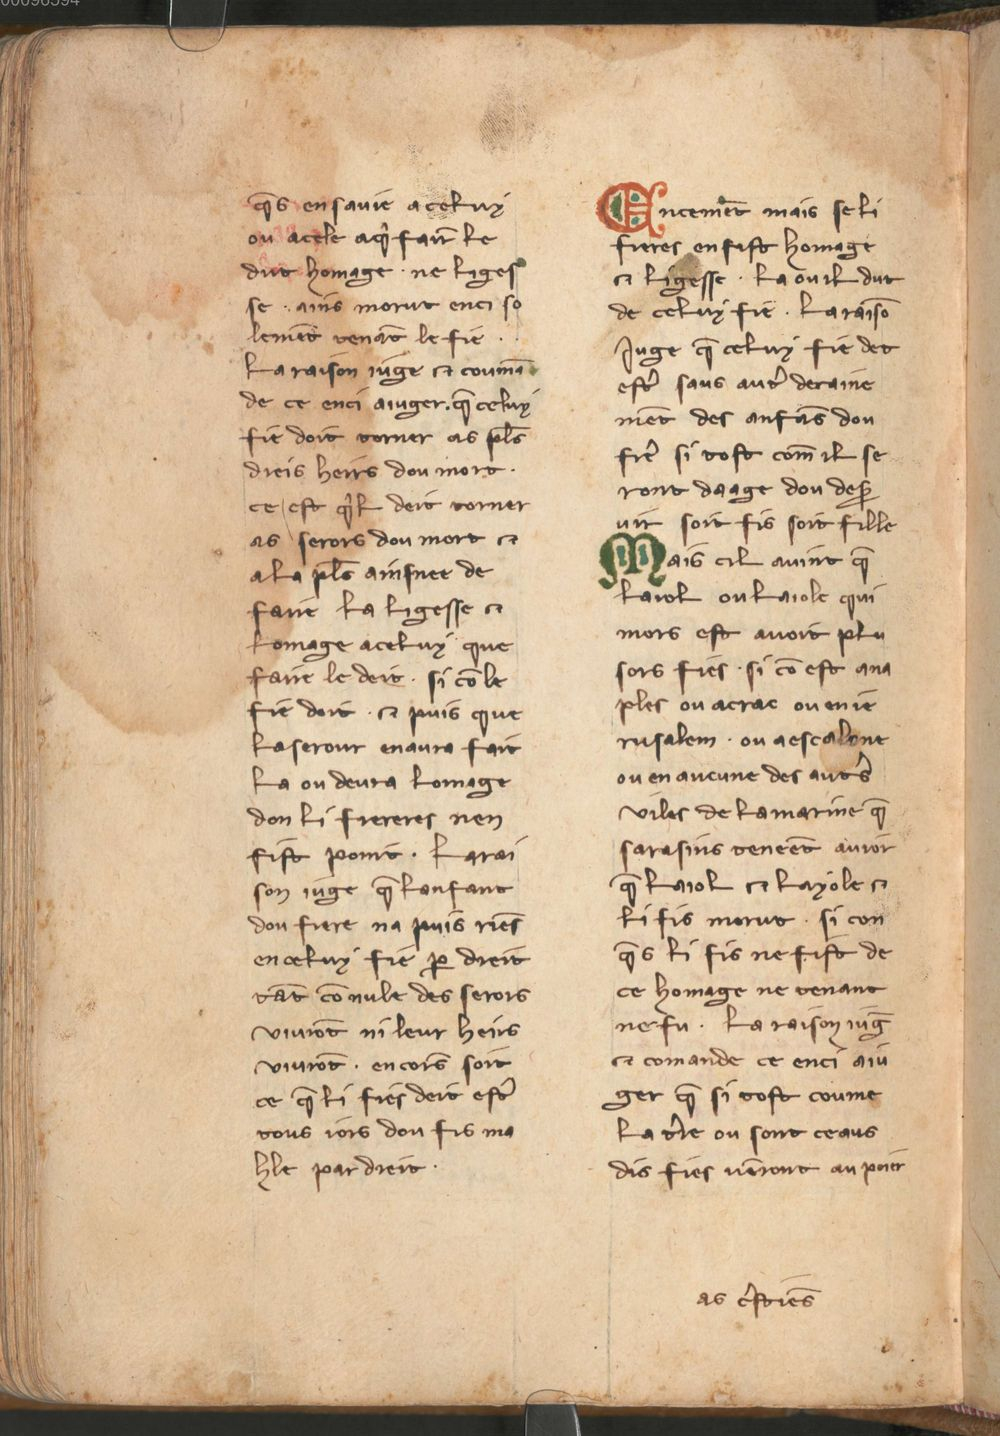 q̃s en sauie a celuy
ou acele aq̃ fair̃ le
dut homage · ne liges
se · ains morut enci so
lemẽt tenãt le fie ·
La raison iuge ⁊ coumã
de ce enci aiuger · q̃ celuy
fie doit torner as pl̃s
dreis heirs dou mort ·
ce est q̃l deit torner
as serors dou mort ⁊
a la pl̃s ainsnee de
faire la ligesse ⁊
lomage a celuy que
faire le deit · si cõ le
fie doit · ⁊ puis que
la serour en aura fait
la ou deura lomage
don li frereres nen
fist point · La rai
son iuge q̃ lanfant
dou frere na puis riẽs
en celuy fie ꝑ dreit
tãt cõ nule des serors
viurõt ni leur heirs
viurõt · encors̃ soit
ce q̃ li fies deit estr̃
tous iors dou fis ma
hle par dreit ·
Encemẽt mais se li
freres en fist homage
⁊ ligesse · La ou il dut
de celuy fie · La raisõ
Juge q̃ celuy fie det
estr̃ saus autr̃ deraine
mẽt des anfãs dou
frr̃ si tost com̃ il se
ront daage dou deß
uir soit fis soit fille
Mais cil auint q̃
laiol ou laiole qui
mors est auoit plu
sors fies · si cõ est a na
ples ou acrac ou en ie
rusalem · ou a escalone
ou en aucune des autrs̃
viles de la marine q̃
sarasins teneẽt auior
q̃ laiol ⁊ layole ⁊
li fis morut · si con
q̃s li fis ne fist de
ce homage ne tenant
ne fu · La raison iug̃
⁊ comande ce enci aiu
ger q̃ si tost coume
La tr̃e ou sont ceaus
dis fies uẽront au poier
as cr̃stiẽs